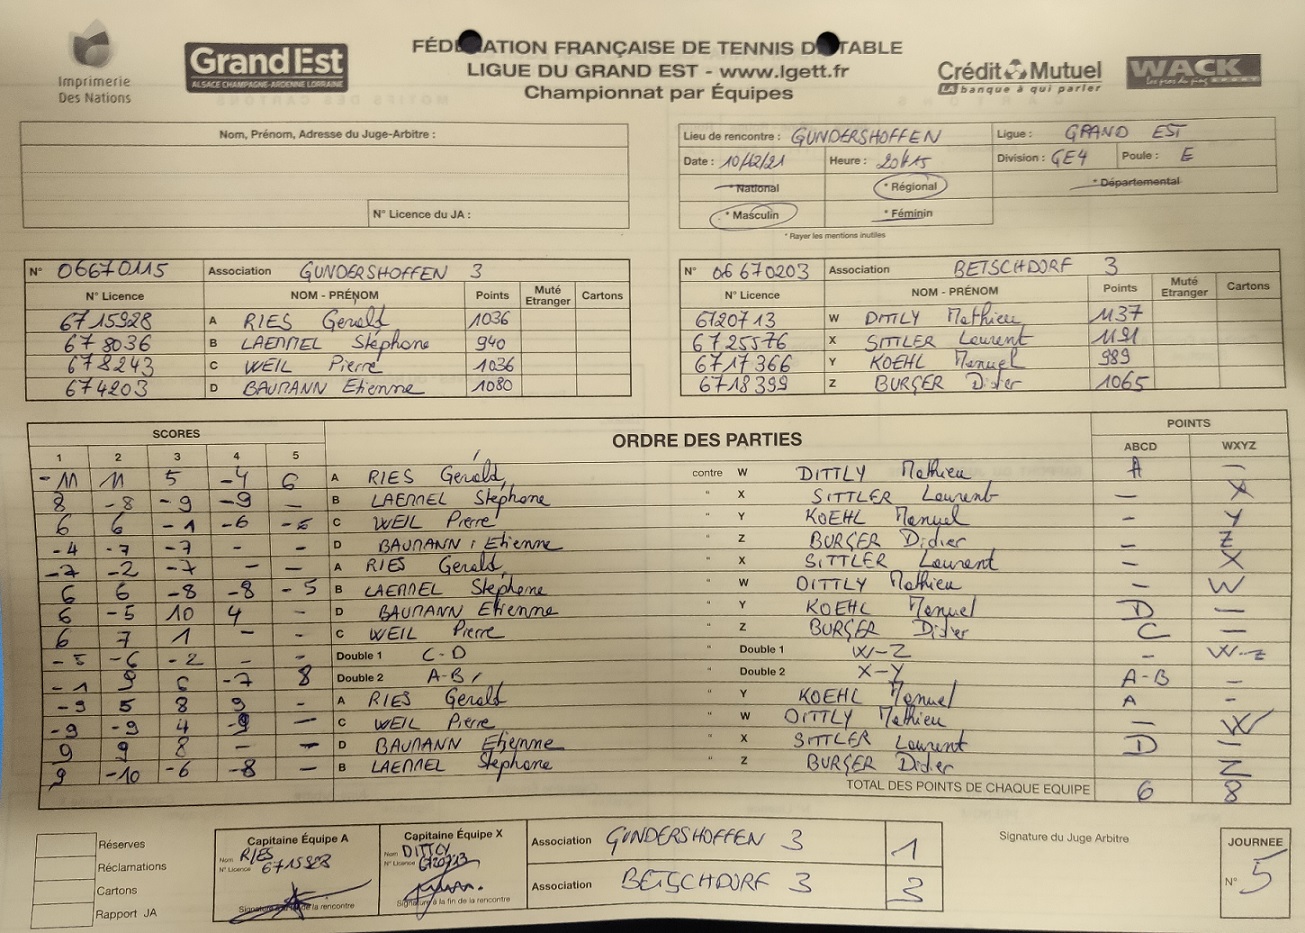 Imprimerie
Des Nations
GrandEst
ALSACE CHAMPAGNE-ARDENNE LORRAINE
FÉDÉRATION FRANÇAISE DE TENNIS DE TABLE
LIGUE DU GRAND EST - www.lgett.fr
Championnat par Équipes
Crédit Mutuel
LA banque à qui parler
WACK
SPORT
Nom, Prénom, Adresse du Juge-Arbitre :
N° Licence du JA :
Lieu de rencontre : GUNDERSHOFFEN Ligue : GRAND EST
Date : 10/12/21 Heure : 20H15 Division : GE4 Poule : E
* National * Régional * Départemental
* Masculin * Féminin
* Rayer les mentions inutiles
N° 06670115 Association GUNDERSHOFFEN 3
N° Licence NOM - PRÉNOM Points Muté Etranger Cartons
6715928 A RIES Gerald 1036
678036 B LAEMMEL Stéphane 940
678243 C WEIL Pierre 1036
674203 D BAUMANN Etienne 1080
N° 06670203 Association BETSCHDORF 3
N° Licence NOM - PRÉNOM Points Muté Etranger Cartons
6720713 W DITTLY Mathieu 1137
6725576 X SITTLER Laurent 1191
6717366 Y KOEHL Manuel 989
6718399 Z BURGER Didier 1065
SCORES ORDRE DES PARTIES POINTS
1 2 3 4 5 ABCD WXYZ
-11 11 5 -4 6 A RIES Gerald contre W DITTLY Mathieu A —
8 -8 -9 -9 — B LAEMMEL Stéphane " X SITTLER Laurent — X
6 6 -1 -6 C WEIL Pierre " Y KOEHL Manuel — Y
-4 -7 -7 - - D BAUMANN Etienne " Z BURGER Didier — Z
-7 -2 -7 — — A RIES Gerald " X SITTLER Laurent — X
6 6 -8 -8 -5 B LAEMMEL Stéphane " W DITTLY Mathieu — W
6 -5 10 4 - D BAUMANN Etienne " Y KOEHL Manuel D —
6 7 1 - - C WEIL Pierre " Z BURGER Didier C —
-5 -6 -2 - - Double 1 C-D " Double 1 W-Z - W-Z
-1 9 6 -7 8 Double 2 A-B " Double 2 X-Y A-B —
-9 5 8 9 - A RIES Gerald " Y KOEHL Manuel A -
-9 -9 4 -9 — C WEIL Pierre " W DITTLY Mathieu — W
9 9 8 - — D BAUMANN Etienne " X SITTLER Laurent D —
9 -10 -6 -8 — B LAEMMEL Stéphane " Z BURGER Didier Z
TOTAL DES POINTS DE CHAQUE EQUIPE 6 8
Réserves
Réclamations
Cartons
Rapport JA
Capitaine Équipe A
Nom RIES
N° Licence 6715928
Signature à la fin de la rencontre
Capitaine Équipe X
Nom DITTLY
N° Licence 6720713
Signature à la fin de la rencontre
Association GUNDERSHOFFEN 3 1
Association BETSCHDORF 3 3
Signature du Juge Arbitre
JOURNEE
N° 5